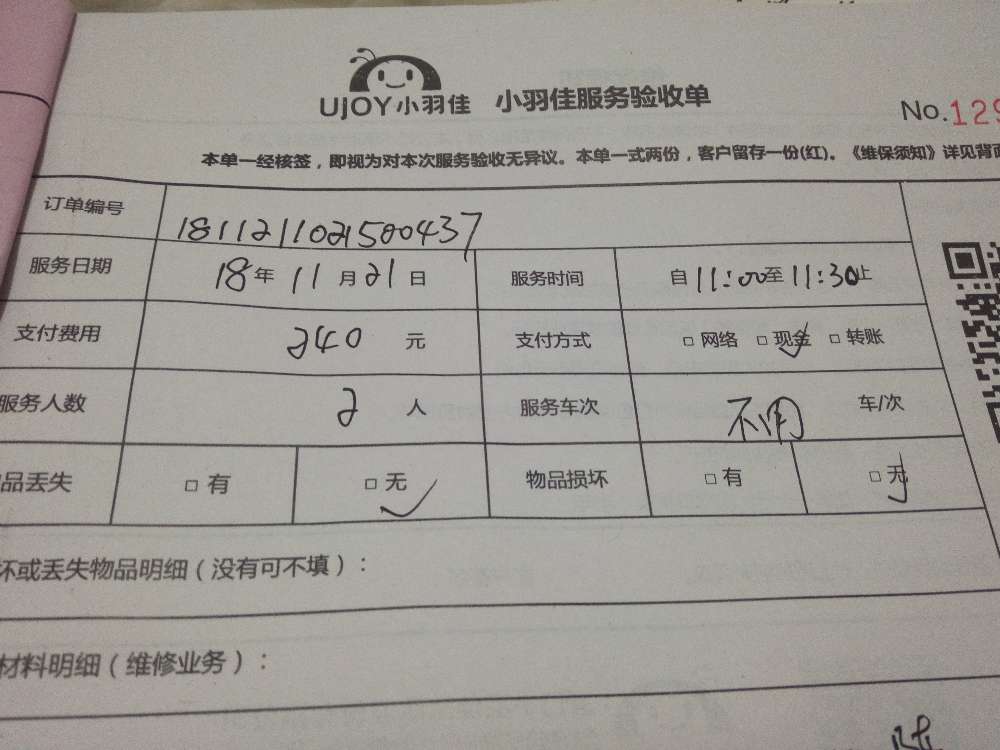 UJOY小羽佳 小羽佳服务验收单
No.129
本单一经核签，即视为对本次服务验收无异议。本单一式两份，客户留存一份(红)。《维保须知》详见背面
订单编号 1811211021500437
服务日期 18年 11月21日 服务时间 自11:00至11:30止
支付费用 240 元 支付方式 □ 网络 □ 现金 □ 转账
服务人数 2 人 服务车次 不用 车/次
品丢失 □ 有 □ 无 物品损坏 □ 有 □ 无
坏或丢失物品明细（没有可不填）：
材料明细（维修业务）：